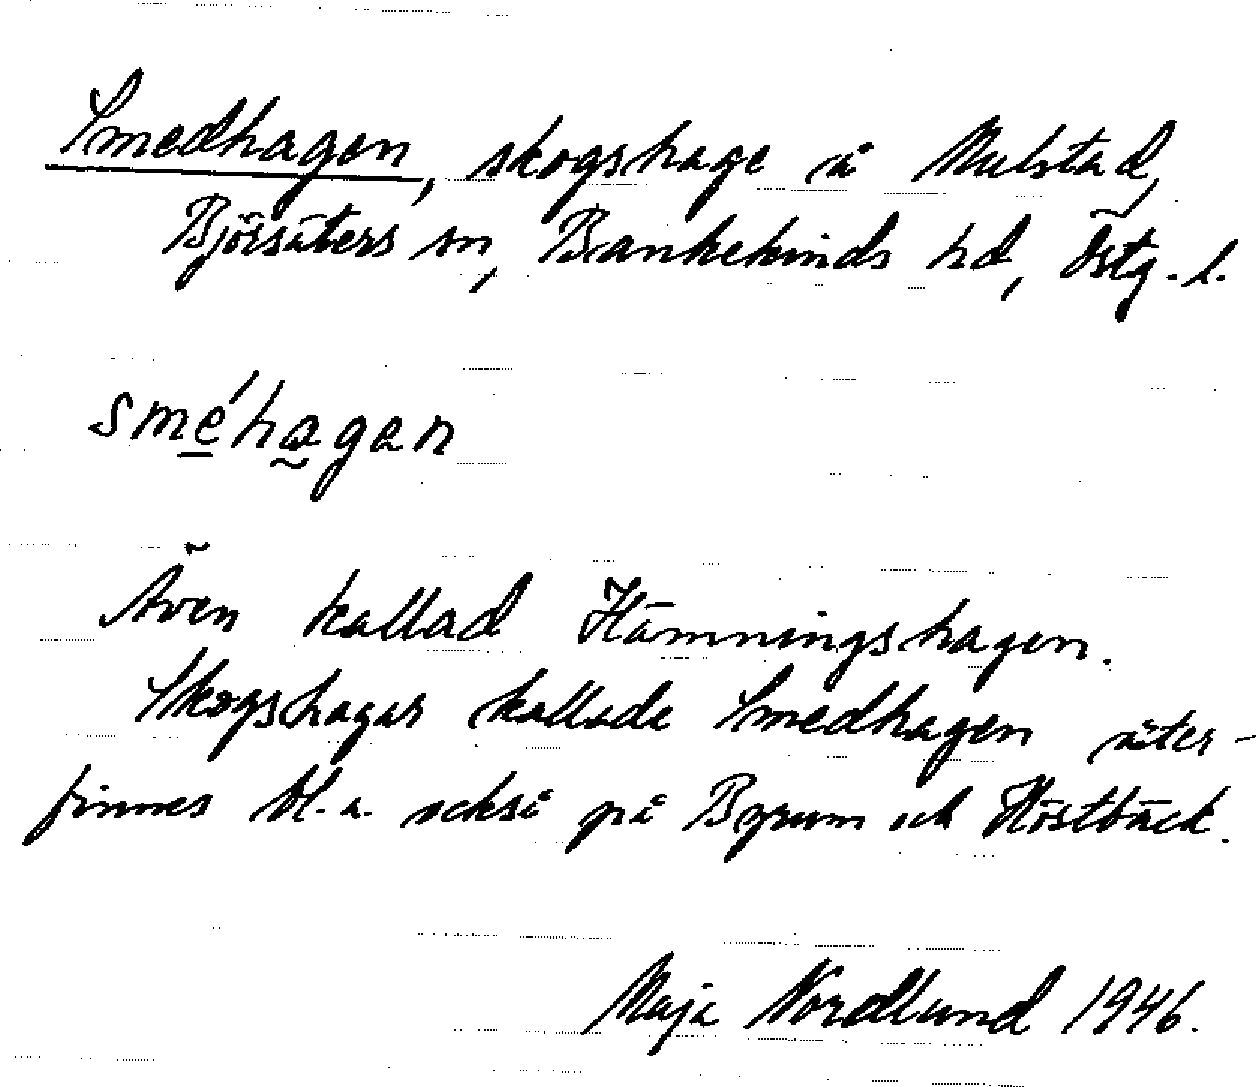 Smedhagen, skogshage å Mulstad,
Björsäters sn, Bankekinds hd, Östg. l.
sméhagan
Även kallad Hämningshagen.
Skogshagar kallade Smedhagen åter-
finnes bl. a. också på Byrum och Höstbäck.
Maja Nordlund 1946.